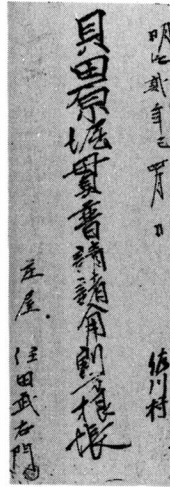 明治貳年巳四月日 佐川村
貝田原堀貫普請諸入用割方根帳
庄屋 住田武右門